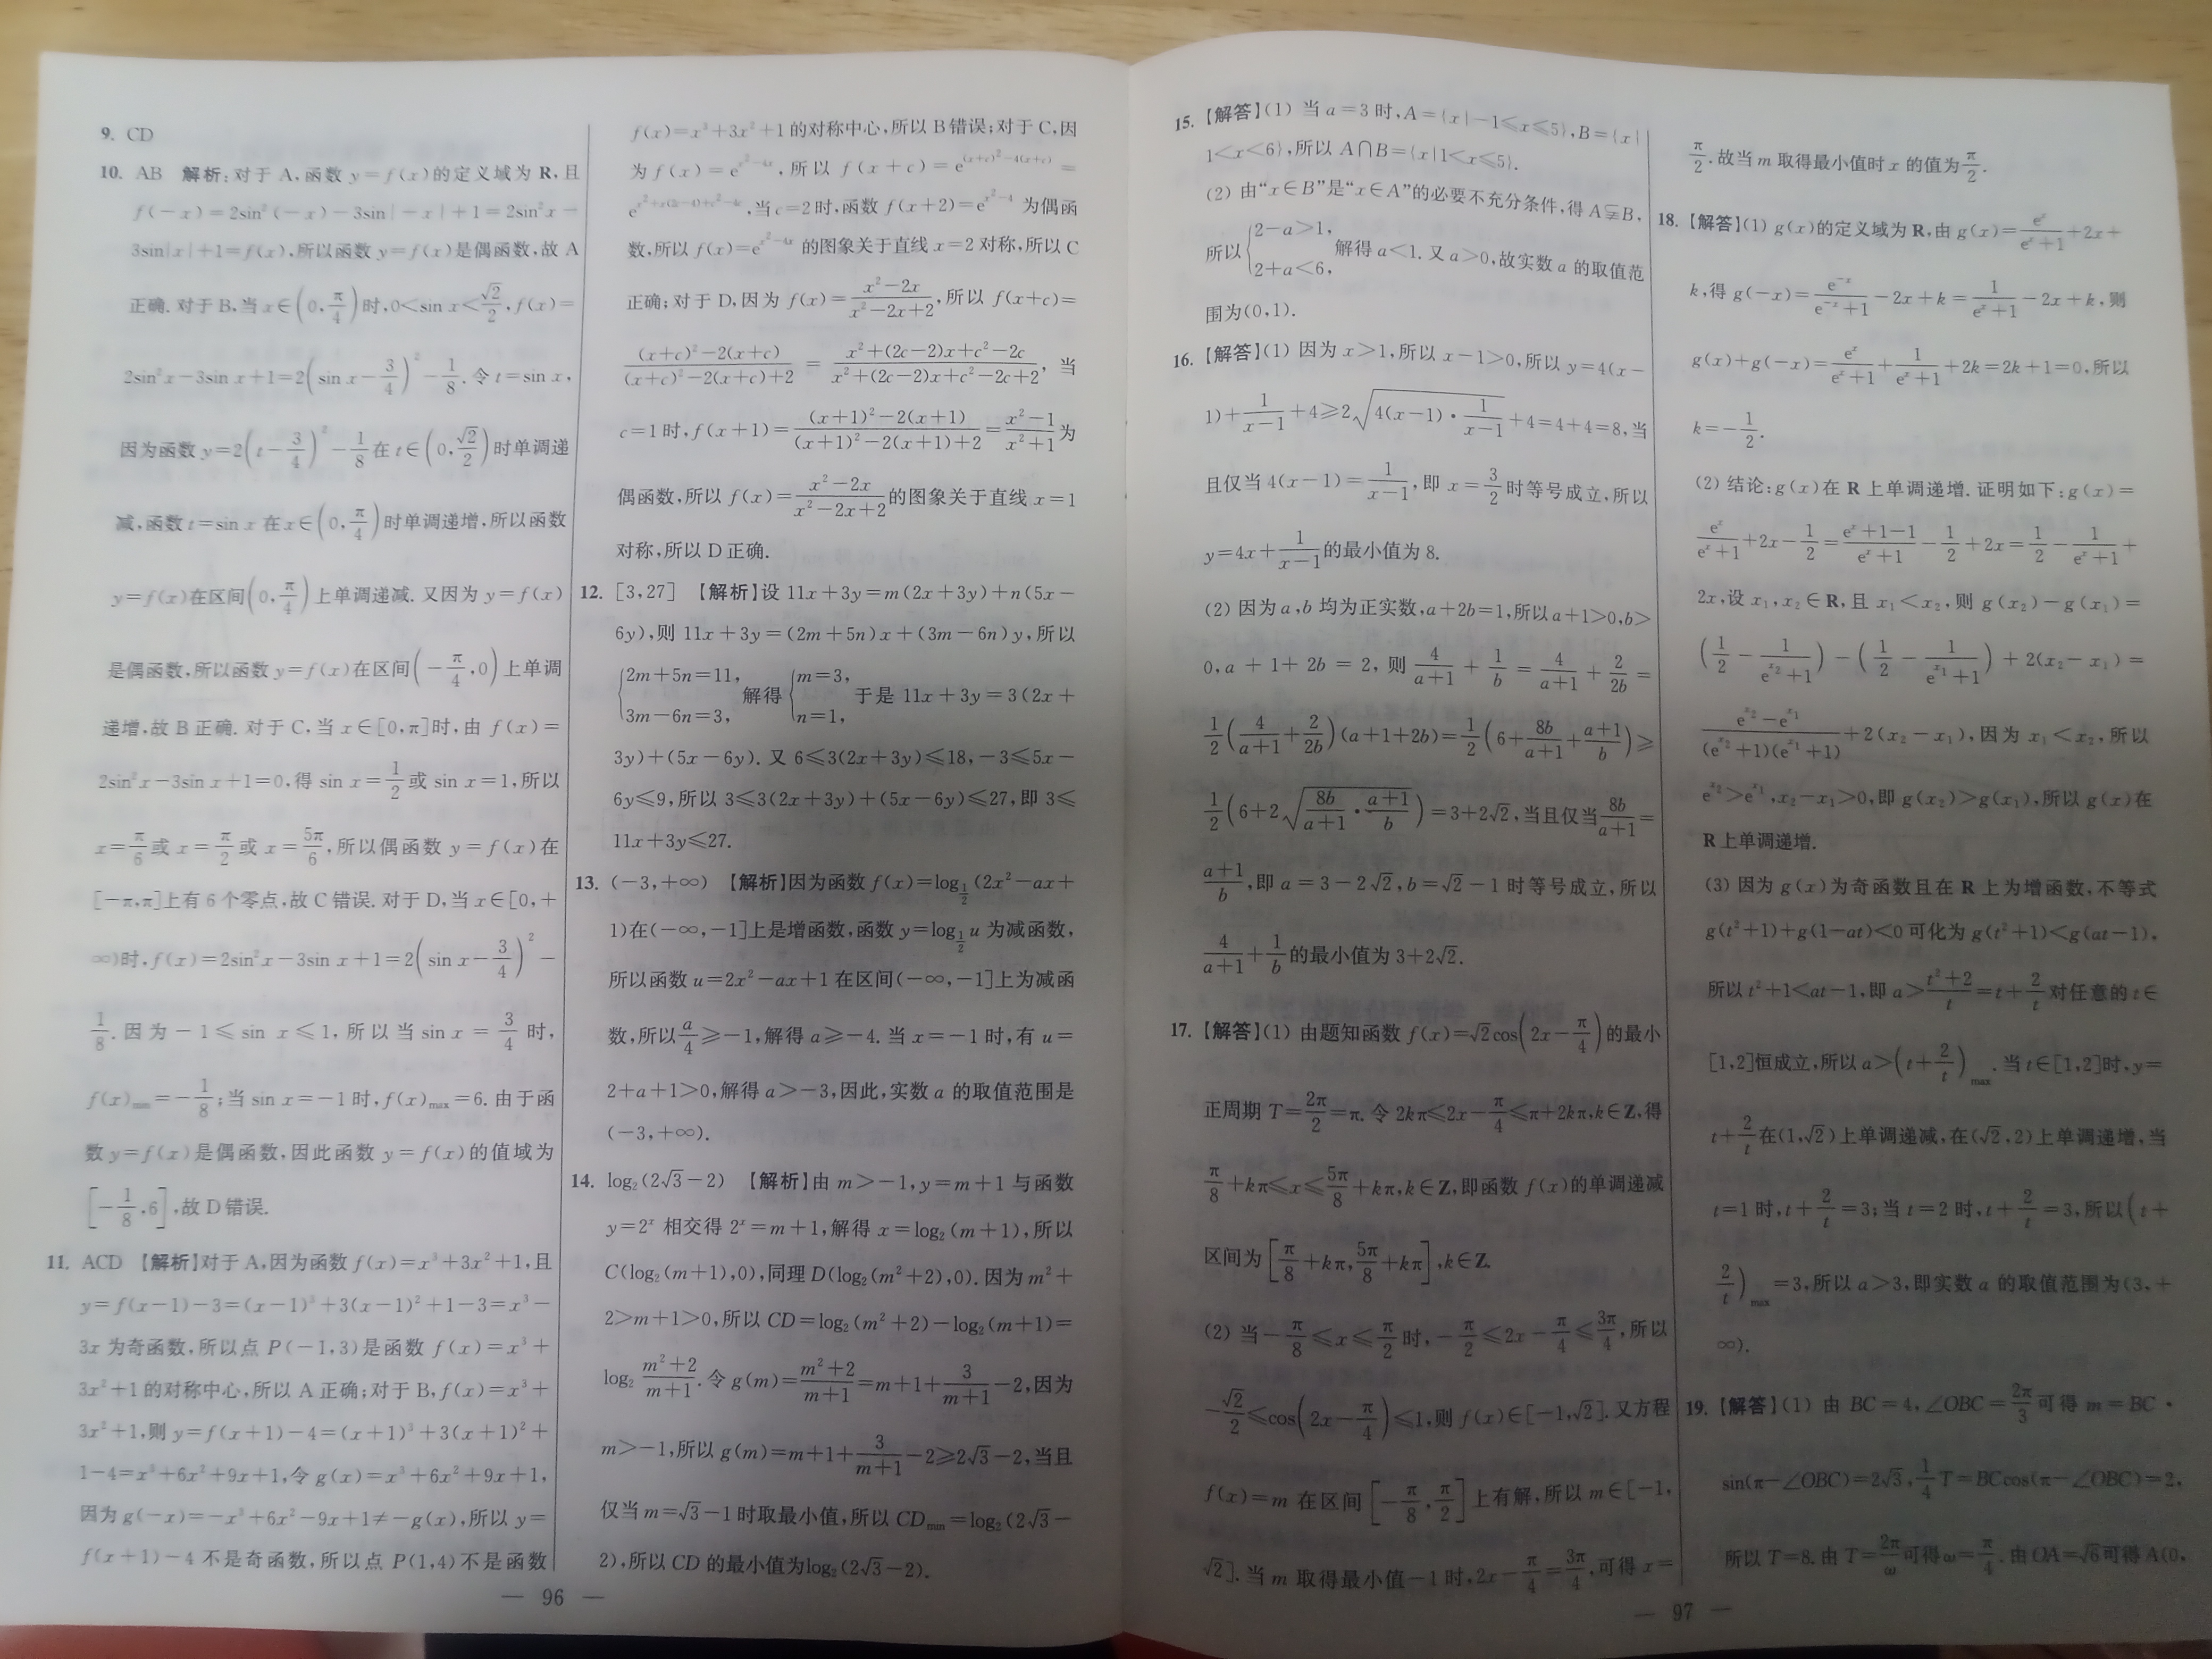 9. CD
10. AB 解析:对于 A,函数 y=f(x)的定义域为 R,且
f(-x)=2sin²(-x)-3sin|-x|+1=2sin²x-
3sin|x|+1=f(x),所以函数 y=f(x)是偶函数,故 A
正确.对于 B,当 x∈(0,π/4)时,0<sin x<√2/2,f(x)=
2sin²x-3sin x+1=2(sin x-3/4)²-1/8.令 t=sin x,
因为函数 y=2(t-3/4)²-1/8在 t∈(0,√2/2)时单调递
减,函数 t=sin x 在 x∈(0,π/4)时单调递增,所以函数
y=f(x)在区间(0,π/4)上单调递减.又因为 y=f(x)
是偶函数,所以函数 y=f(x)在区间(-π/4,0)上单调
递增,故 B 正确.对于 C,当 x∈[0,π]时,由 f(x)=
2sin²x-3sin x+1=0,得 sin x=1/2或 sin x=1,所以
x=π/6或 x=π/2或 x=5π/6,所以偶函数 y=f(x)在
[-π,π]上有 6 个零点,故 C 错误.对于 D,当 x∈[0,+
∞)时,f(x)=2sin²x-3sin x+1=2(sin x-3/4)²-
1/8.因为-1≤sin x≤1,所以当 sin x=3/4时,
f(x)min=-1/8;当 sin x=-1 时,f(x)max=6.由于函
数 y=f(x)是偶函数,因此函数 y=f(x)的值域为
[-1/8,6],故 D 错误.
11. ACD 【解析】对于 A,因为函数 f(x)=x³+3x²+1,且
y=f(x-1)-3=(x-1)³+3(x-1)²+1-3=x³-
3x 为奇函数,所以点 P(-1,3)是函数 f(x)=x³+
3x²+1 的对称中心,所以 A 正确;对于 B,f(x)=x³+
3x²+1,则 y=f(x+1)-4=(x+1)³+3(x+1)²+
1-4=x³+6x²+9x+1,令 g(x)=x³+6x²+9x+1,
因为 g(-x)=-x³+6x²-9x+1≠-g(x),所以 y=
f(x+1)-4 不是奇函数,所以点 P(1,4)不是函数
f(x)=x³+3x²+1 的对称中心,所以 B 错误;对于 C,因
为 f(x)=e^(x²-4x),所以 f(x+c)=e^((x+c)²-4(x+c))=
e^(x²+x(2c-4)+c²-4c),当 c=2 时,函数 f(x+2)=e^(x²-4)为偶函
数,所以 f(x)=e^(x²-4x) 的图象关于直线 x=2 对称,所以 C
正确;对于 D,因为 f(x)=(x²-2x)/(x²-2x+2),所以 f(x+c)=
((x+c)²-2(x+c))/((x+c)²-2(x+c)+2)=(x²+(2c-2)x+c²-2c)/(x²+(2c-2)x+c²-2c+2),当
c=1 时,f(x+1)=((x+1)²-2(x+1))/((x+1)²-2(x+1)+2)=(x²-1)/(x²+1)为
偶函数,所以 f(x)=(x²-2x)/(x²-2x+2)的图象关于直线 x=1
对称,所以 D 正确.
12. [3,27] 【解析】设 11x+3y=m(2x+3y)+n(5x-
6y),则 11x+3y=(2m+5n)x+(3m-6n)y,所以
{2m+5n=11, 3m-6n=3, 解得{m=3, n=1, 于是 11x+3y=3(2x+
3y)+(5x-6y).又 6≤3(2x+3y)≤18,-3≤5x-
6y≤9,所以 3≤3(2x+3y)+(5x-6y)≤27,即 3≤
11x+3y≤27.
13. (-3,+∞) 【解析】因为函数 f(x)=log_(1/2)(2x²-ax+
1)在(-∞,-1]上是增函数,函数 y=log_(1/2)u 为减函数,
所以函数 u=2x²-ax+1 在区间(-∞,-1]上为减函
数,所以a/4≥-1,解得 a≥-4.当 x=-1 时,有 u=
2+a+1>0,解得 a>-3,因此,实数 a 的取值范围是
(-3,+∞).
14. log₂(2√3-2) 【解析】由 m>-1,y=m+1 与函数
y=2ˣ 相交得 2ˣ=m+1,解得 x=log₂(m+1),所以
C(log₂(m+1),0),同理 D(log₂(m²+2),0).因为 m²+
2>m+1>0,所以 CD=log₂(m²+2)-log₂(m+1)=
log₂ (m²+2)/(m+1).令 g(m)=(m²+2)/(m+1)=m+1+3/(m+1)-2,因为
m>-1,所以 g(m)=m+1+3/(m+1)-2≥2√3-2,当且
仅当 m=√3-1 时取最小值,所以 CDmin=log₂(2√3-
2),所以 CD 的最小值为log₂(2√3-2).
— 96 —
15. 【解答】(1) 当 a=3 时,A={x|-1≤x≤5},B={x|
1<x<6},所以 A∩B={x|1<x≤5}.
(2) 由“x∈B”是“x∈A”的必要不充分条件,得 A⫋B,
所以{2-a>1, 2+a<6, 解得 a<1.又 a>0,故实数 a 的取值范
围为(0,1).
16. 【解答】(1) 因为 x>1,所以 x-1>0,所以 y=4(x-
1)+1/(x-1)+4≥2√(4(x-1)·1/(x-1))+4=4+4=8,当
且仅当 4(x-1)=1/(x-1),即 x=3/2时等号成立,所以
y=4x+1/(x-1)的最小值为 8.
(2) 因为 a,b 均为正实数,a+2b=1,所以 a+1>0,b>
0,a+1+2b=2,则 4/(a+1)+1/b=4/(a+1)+2/2b=
1/2(4/(a+1)+2/2b)(a+1+2b)=1/2(6+8b/(a+1)+(a+1)/b)≥
1/2(6+2√(8b/(a+1)·(a+1)/b))=3+2√2,当且仅当8b/(a+1)=
(a+1)/b,即 a=3-2√2,b=√2-1 时等号成立,所以
4/(a+1)+1/b的最小值为 3+2√2.
17. 【解答】(1) 由题知函数 f(x)=√2cos(2x-π/4)的最小
正周期 T=2π/2=π.令 2kπ≤2x-π/4≤π+2kπ,k∈Z,得
π/8+kπ≤x≤5π/8+kπ,k∈Z,即函数 f(x)的单调递减
区间为[π/8+kπ,5π/8+kπ],k∈Z.
(2) 当-π/8≤x≤π/2时,-π/2≤2x-π/4≤3π/4,所以
-√2/2≤cos(2x-π/4)≤1,则 f(x)∈[-1,√2].又方程
f(x)=m 在区间[-π/8,π/2]上有解,所以 m∈[-1,
√2].当 m 取得最小值-1 时,2x-π/4=3π/4,可得 x=
π/2.故当 m 取得最小值时 x 的值为π/2.
18. 【解答】(1) g(x)的定义域为 R,由 g(x)=eˣ/(eˣ+1)+2x+
k,得 g(-x)=e⁻ˣ/(e⁻ˣ+1)-2x+k=1/(eˣ+1)-2x+k,则
g(x)+g(-x)=eˣ/(eˣ+1)+1/(eˣ+1)+2k=2k+1=0,所以
k=-1/2.
(2) 结论:g(x)在 R 上单调递增.证明如下:g(x)=
eˣ/(eˣ+1)+2x-1/2=(eˣ+1-1)/(eˣ+1)-1/2+2x=1/2-1/(eˣ+1)+
2x,设 x₁,x₂∈R,且 x₁<x₂,则 g(x₂)-g(x₁)=
(1/2-1/(e^x₂+1))-(1/2-1/(e^x₁+1))+2(x₂-x₁)=
(e^x₂-e^x₁)/((e^x₂+1)(e^x₁+1))+2(x₂-x₁),因为 x₁<x₂,所以
e^x₂>e^x₁,x₂-x₁>0,即 g(x₂)>g(x₁),所以 g(x)在
R 上单调递增.
(3) 因为 g(x)为奇函数且在 R 上为增函数,不等式
g(t²+1)+g(1-at)<0 可化为 g(t²+1)<g(at-1),
所以 t²+1<at-1,即 a>(t²+2)/t=t+2/t对任意的 t∈
[1,2]恒成立,所以 a>(t+2/t)max.当 t∈[1,2]时,y=
t+2/t在(1,√2)上单调递减,在(√2,2)上单调递增,当
t=1 时,t+2/t=3;当 t=2 时,t+2/t=3,所以(t+
2/t)max=3,所以 a>3,即实数 a 的取值范围为(3,+
∞).
19. 【解答】(1) 由 BC=4,∠OBC=2π/3可得 m=BC·
sin(π-∠OBC)=2√3,1/4T=BCcos(π-∠OBC)=2,
所以 T=8.由 T=2π/ω可得ω=π/4.由 OA=√6可得 A(0,
— 97 —